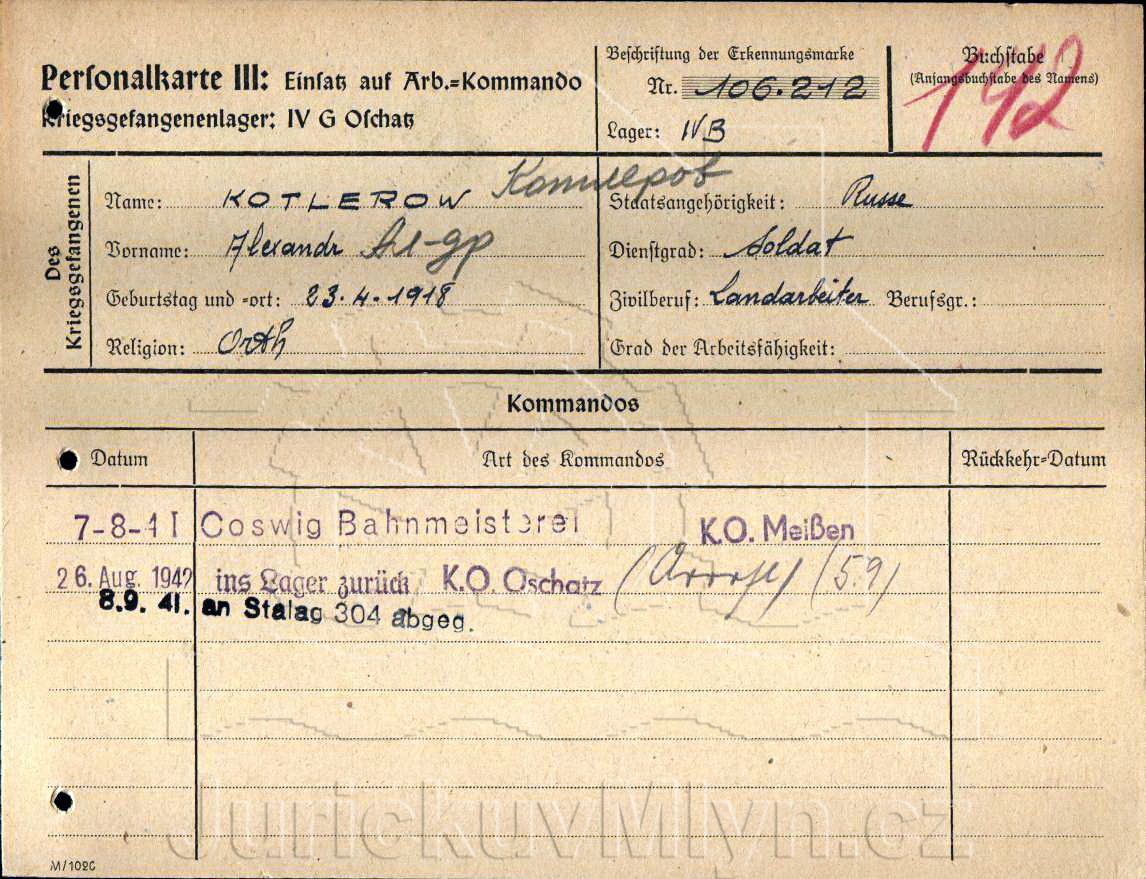 Personalkarte III: Einsatz auf Arb.=Kommando
Kriegsgefangenenlager: IV G Oschatz
Beschriftung der Erkennungsmarke
Nr. 106.212
Lager: IVB
Buchstabe
(Anfangsbuchstabe des Namens)
142
Des Kriegsgefangenen
Name: KOTLEROW Котлеров
Vorname: Alexandr Ал-др
Geburtstag und =ort: 23.4.1918
Religion: Orth
Staatsangehörigkeit: Russe
Dienstgrad: Soldat
Zivilberuf: Landarbeiter Berufsgr.:
Grad der Arbeitsfähigkeit:
Kommandos
Datum Art des Kommandos Rückkehr=Datum
7-8-41 Coswig Bahnmeisterei K.O. Meißen
26. Aug. 1942 ins Lager zurück K.O. Oschatz (5.9)
8.9. 41. an Stalag 304 abgeg.
JurickuvMlyn.cz